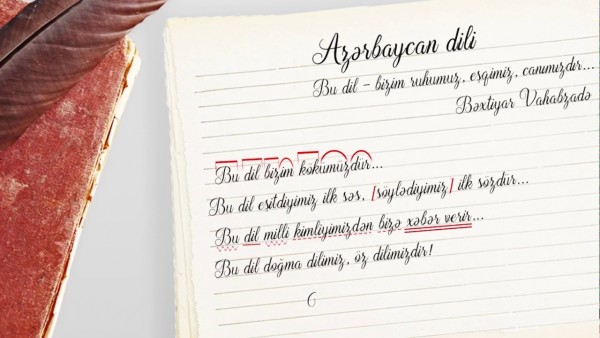 Azərbaycan dili
Bu dil – bizim ruhumuz, eşqimiz, canımızdır...
Bəxtiyar Vahabzadə
Bu dil bizim kökümüzdür...
Bu dil eşitdiyimiz ilk səs, söylədiyimiz ilk sözdür...
Bu dil milli kimliyimizdən bizə xəbər verir...
Bu dil doğma dilimiz, öz dilimizdir!